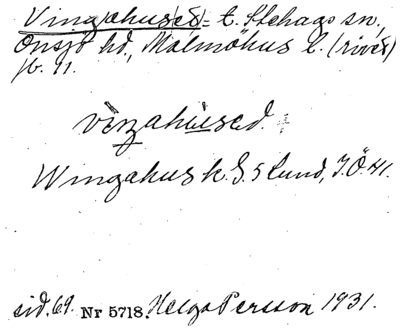 Vingahus(et) = t. Stehags sn,
Onsjö hd, Malmöhus l. (rivet)
fb. 11.
vinzahused.
Wingahus h. G. 5 Lund, J.Ö. 41.
sid. 69. Nr 5718. Helga Persson 1931.